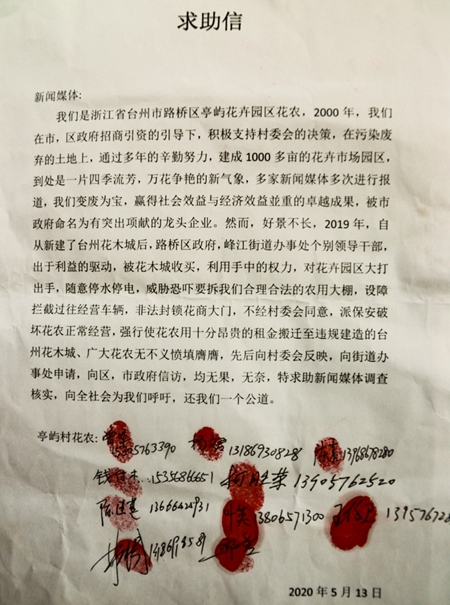 求助信
新闻媒体:
我们是浙江省台州市路桥区亭屿花卉园区花农，2000年，我们
在市，区政府招商引资的引导下，积极支持村委会的决策，在污染废
弃的土地上，通过多年的辛勤努力，建成1000多亩的花卉市场园区，
到处是一片四季流芳，万花争艳的新气象，多家新闻媒体多次进行报
道，我们变废为宝，赢得社会效益与经济效益並重的卓越成果，被市
政府命名为有突出项献的龙头企业。然而，好景不长，2019年，自
从新建了台州花木城后，路桥区政府，峰江街道办事处个别领导干部，
出于利益的驱动，被花木城收买，利用手中的权力，对花卉园区大打
出手，随意停水停电，威胁恐吓要拆我们合理合法的农用大棚，设障
拦截过往经营车辆，非法封锁花商大门，不经村委会同意，派保安破
坏花农正常经营，强行使花农用十分昂贵的租金搬迁至违规建造的台
州花木城、广大花农无不义愤填膺膺，先后向村委会反映，向街道办
事处申请，向区，市政府信访，均无果，无奈，特求助新闻媒体调查
核实，向全社会为我们呼吁，还我们一个公道。
亭屿村花农:
13905762520
13666422931 13806571300
2020年5月13日